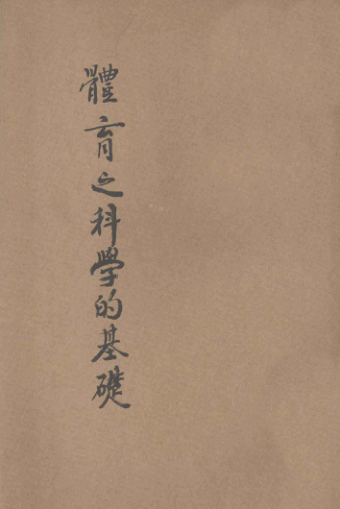 體育之科學的基礎